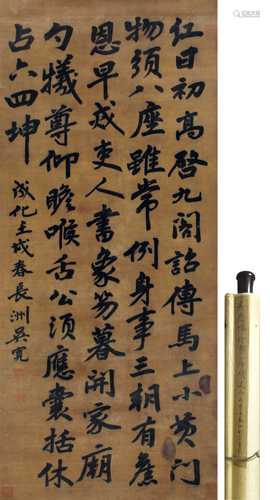 紅日初高啓九閽詔傳馬上小黄門
物須八座雖常例身事三朝有舊
恩早戒吏人書象笏暮開家廟
勺犧尊仰瞻喉舌公須應囊括休
占六四坤
成化壬戌春長洲吳寬